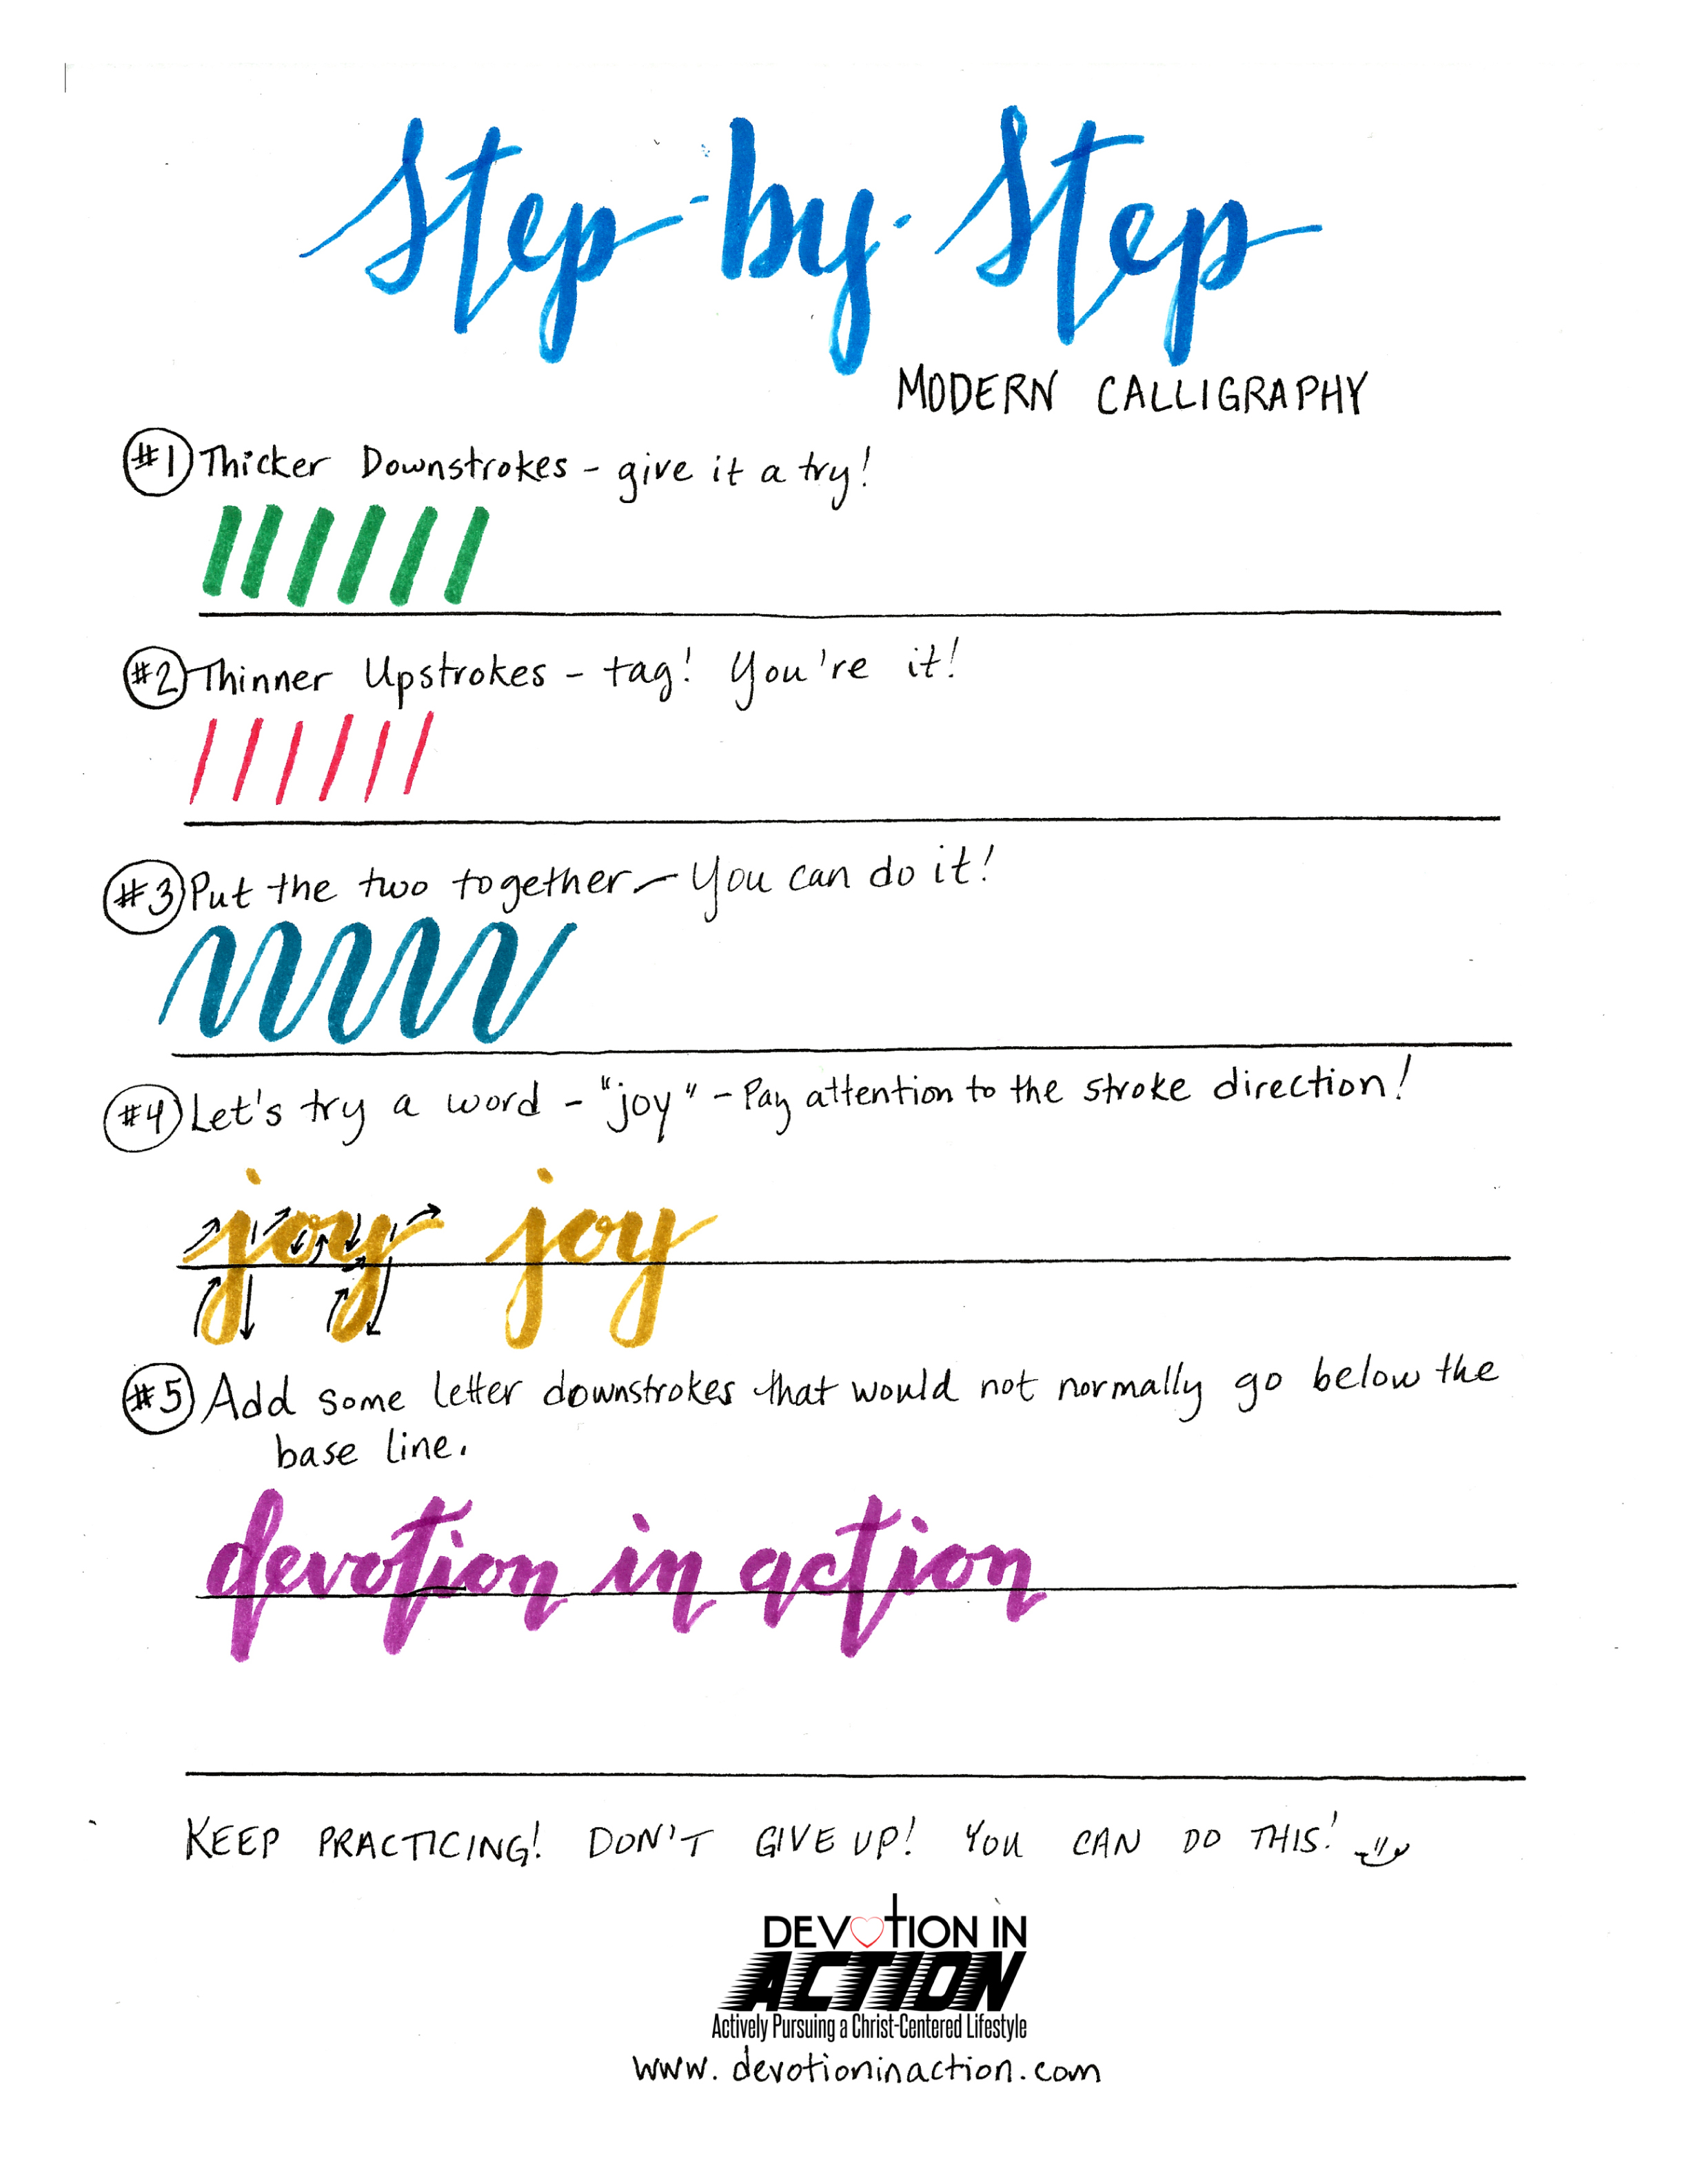 Step-by-Step
MODERN CALLIGRAPHY
#1 Thicker Downstrokes - give it a try!
#2 Thinner Upstrokes - tag! You're it!
#3 Put the two together - You can do it!
#4 Let's try a word - "joy" - Pay attention to the stroke direction!
joy joy
#5 Add some letter downstrokes that would not normally go below the
base line.
devotion in action
KEEP PRACTICING! DON'T GIVE UP! YOU CAN DO THIS!
DEVOTION IN
ACTION
Actively Pursuing a Christ-Centered Lifestyle
www.devotioninaction.com